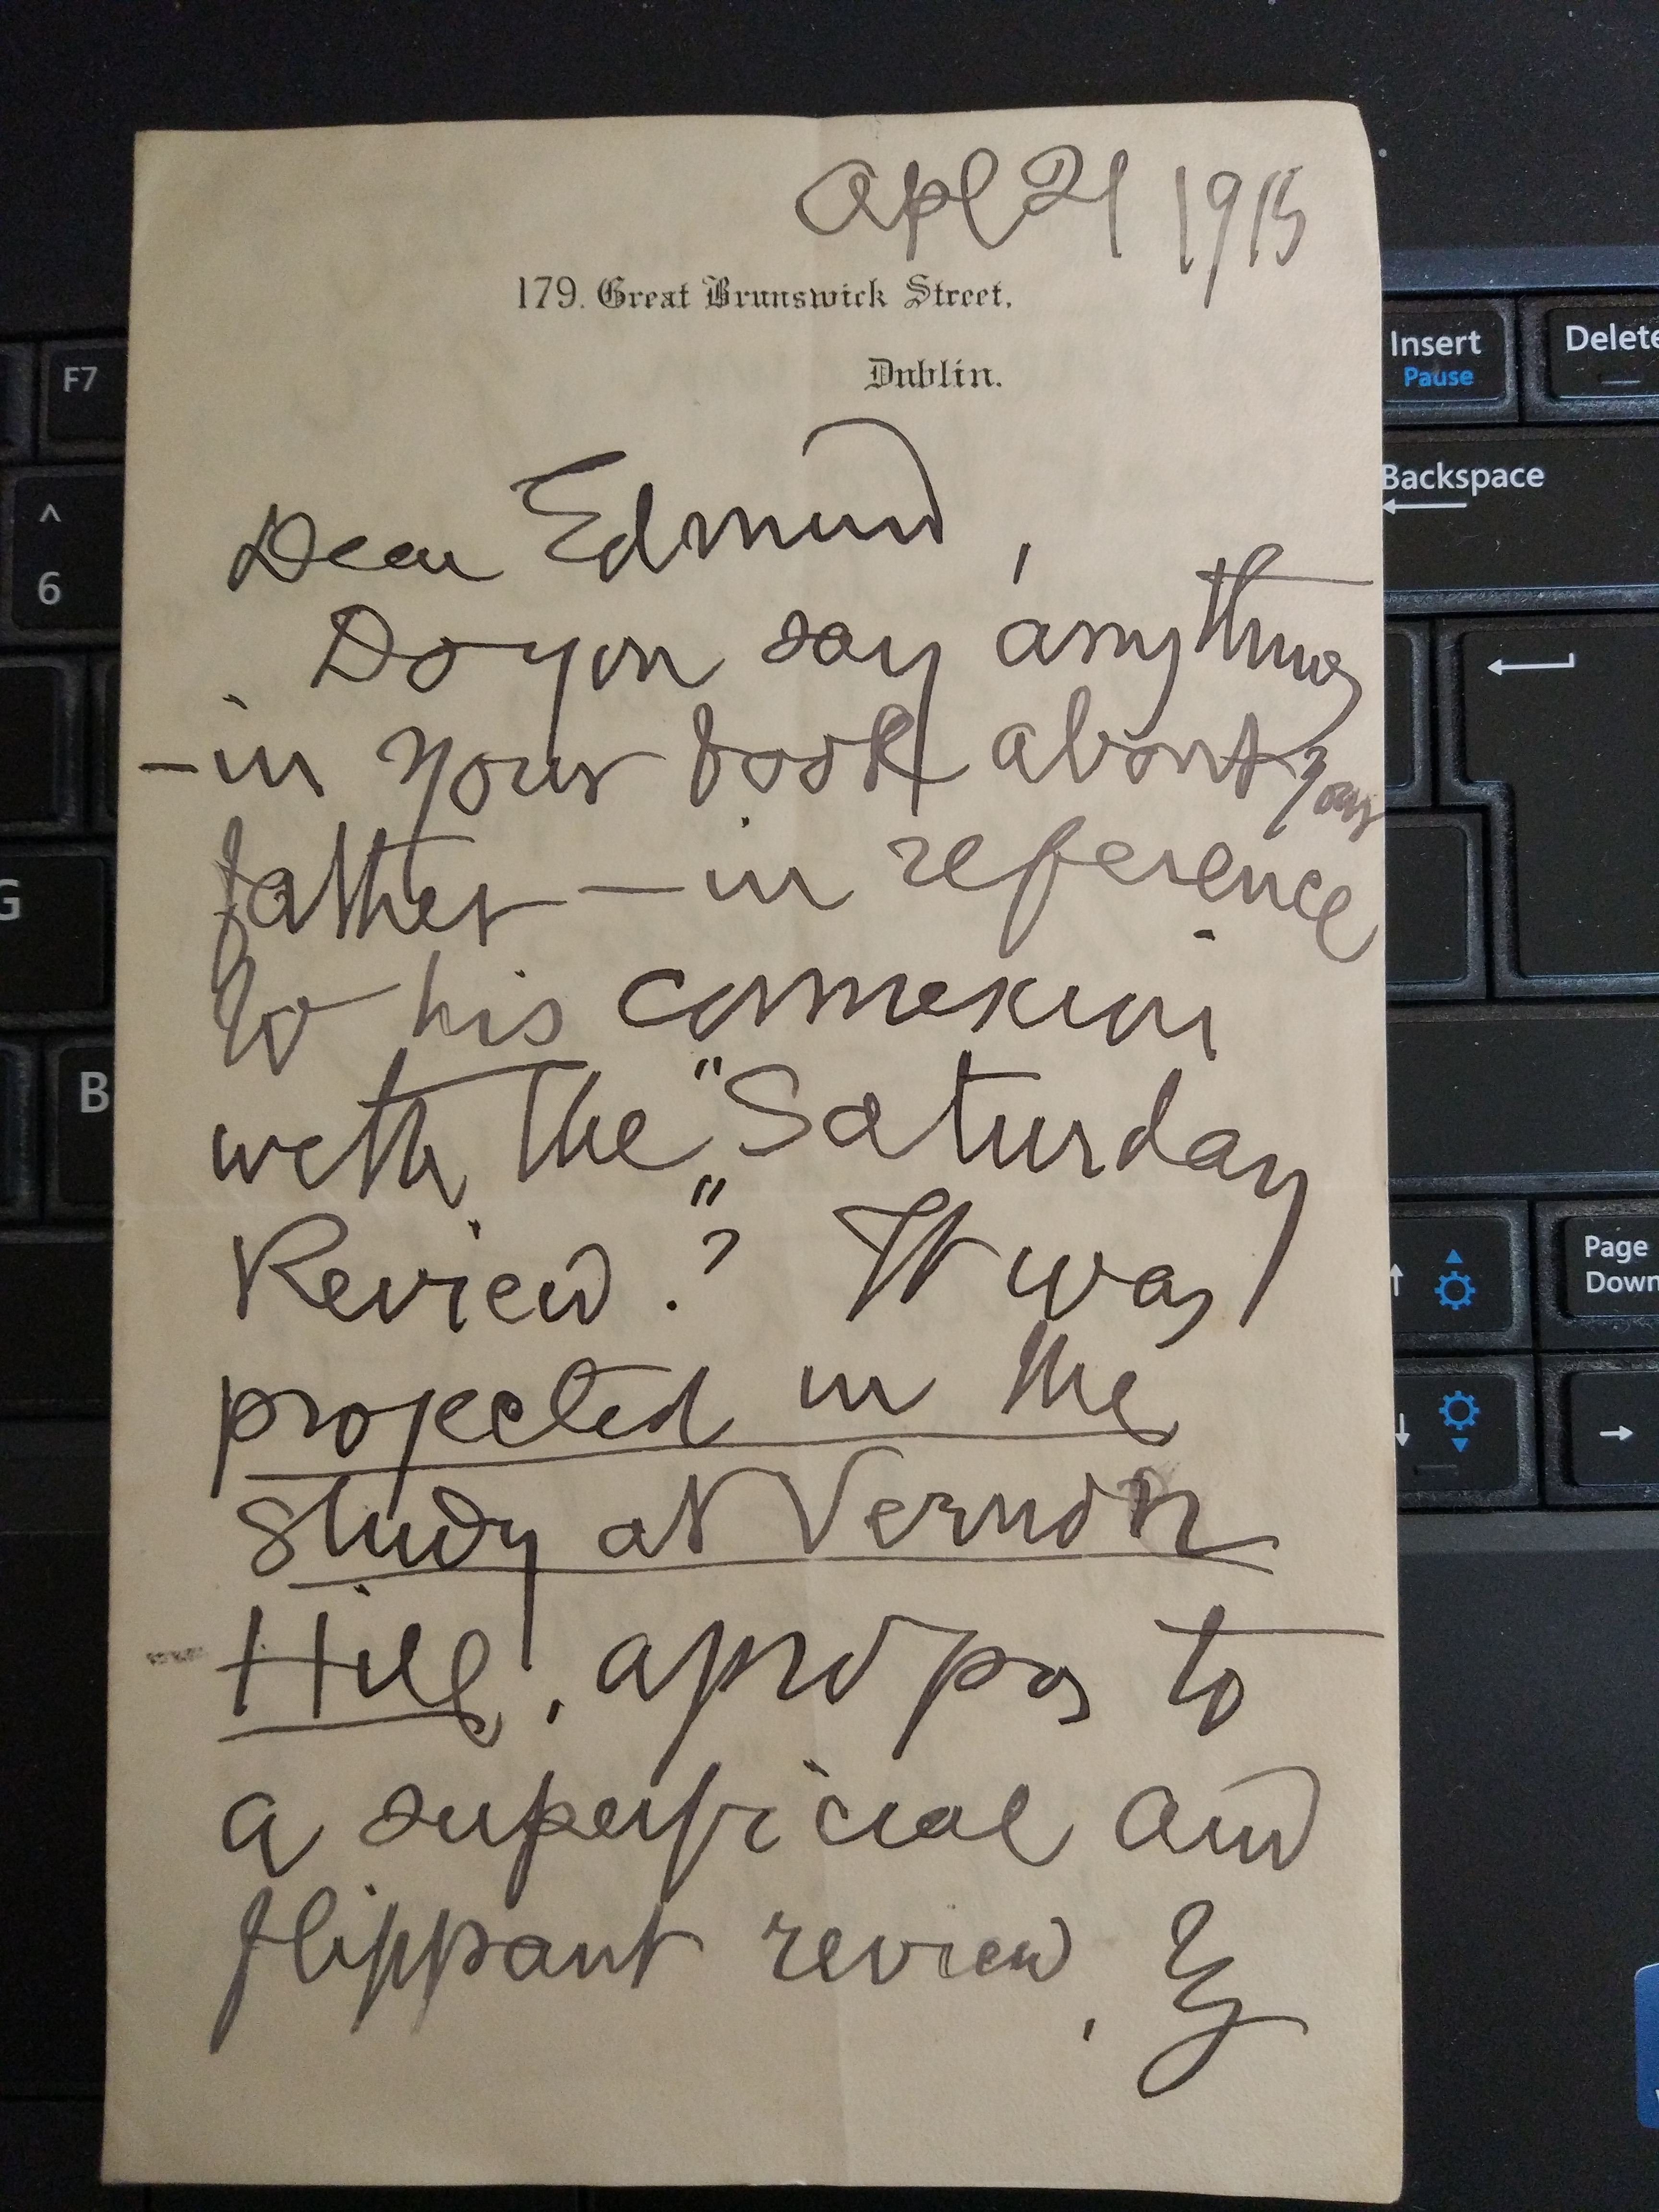 Apl 21 1915
179. Great Brunswick Street.
Dublin.
Dear Edmund,
Do you say anything
- in your book about your
father - in reference
to his connexion
with the "Saturday
Review"? It was
projected in the
study at Vernon
Hill, apropos to
a superficial and
flippant review, by
F7
Insert
Pause
Delete
Backspace
^
6
G
B
Page
Down